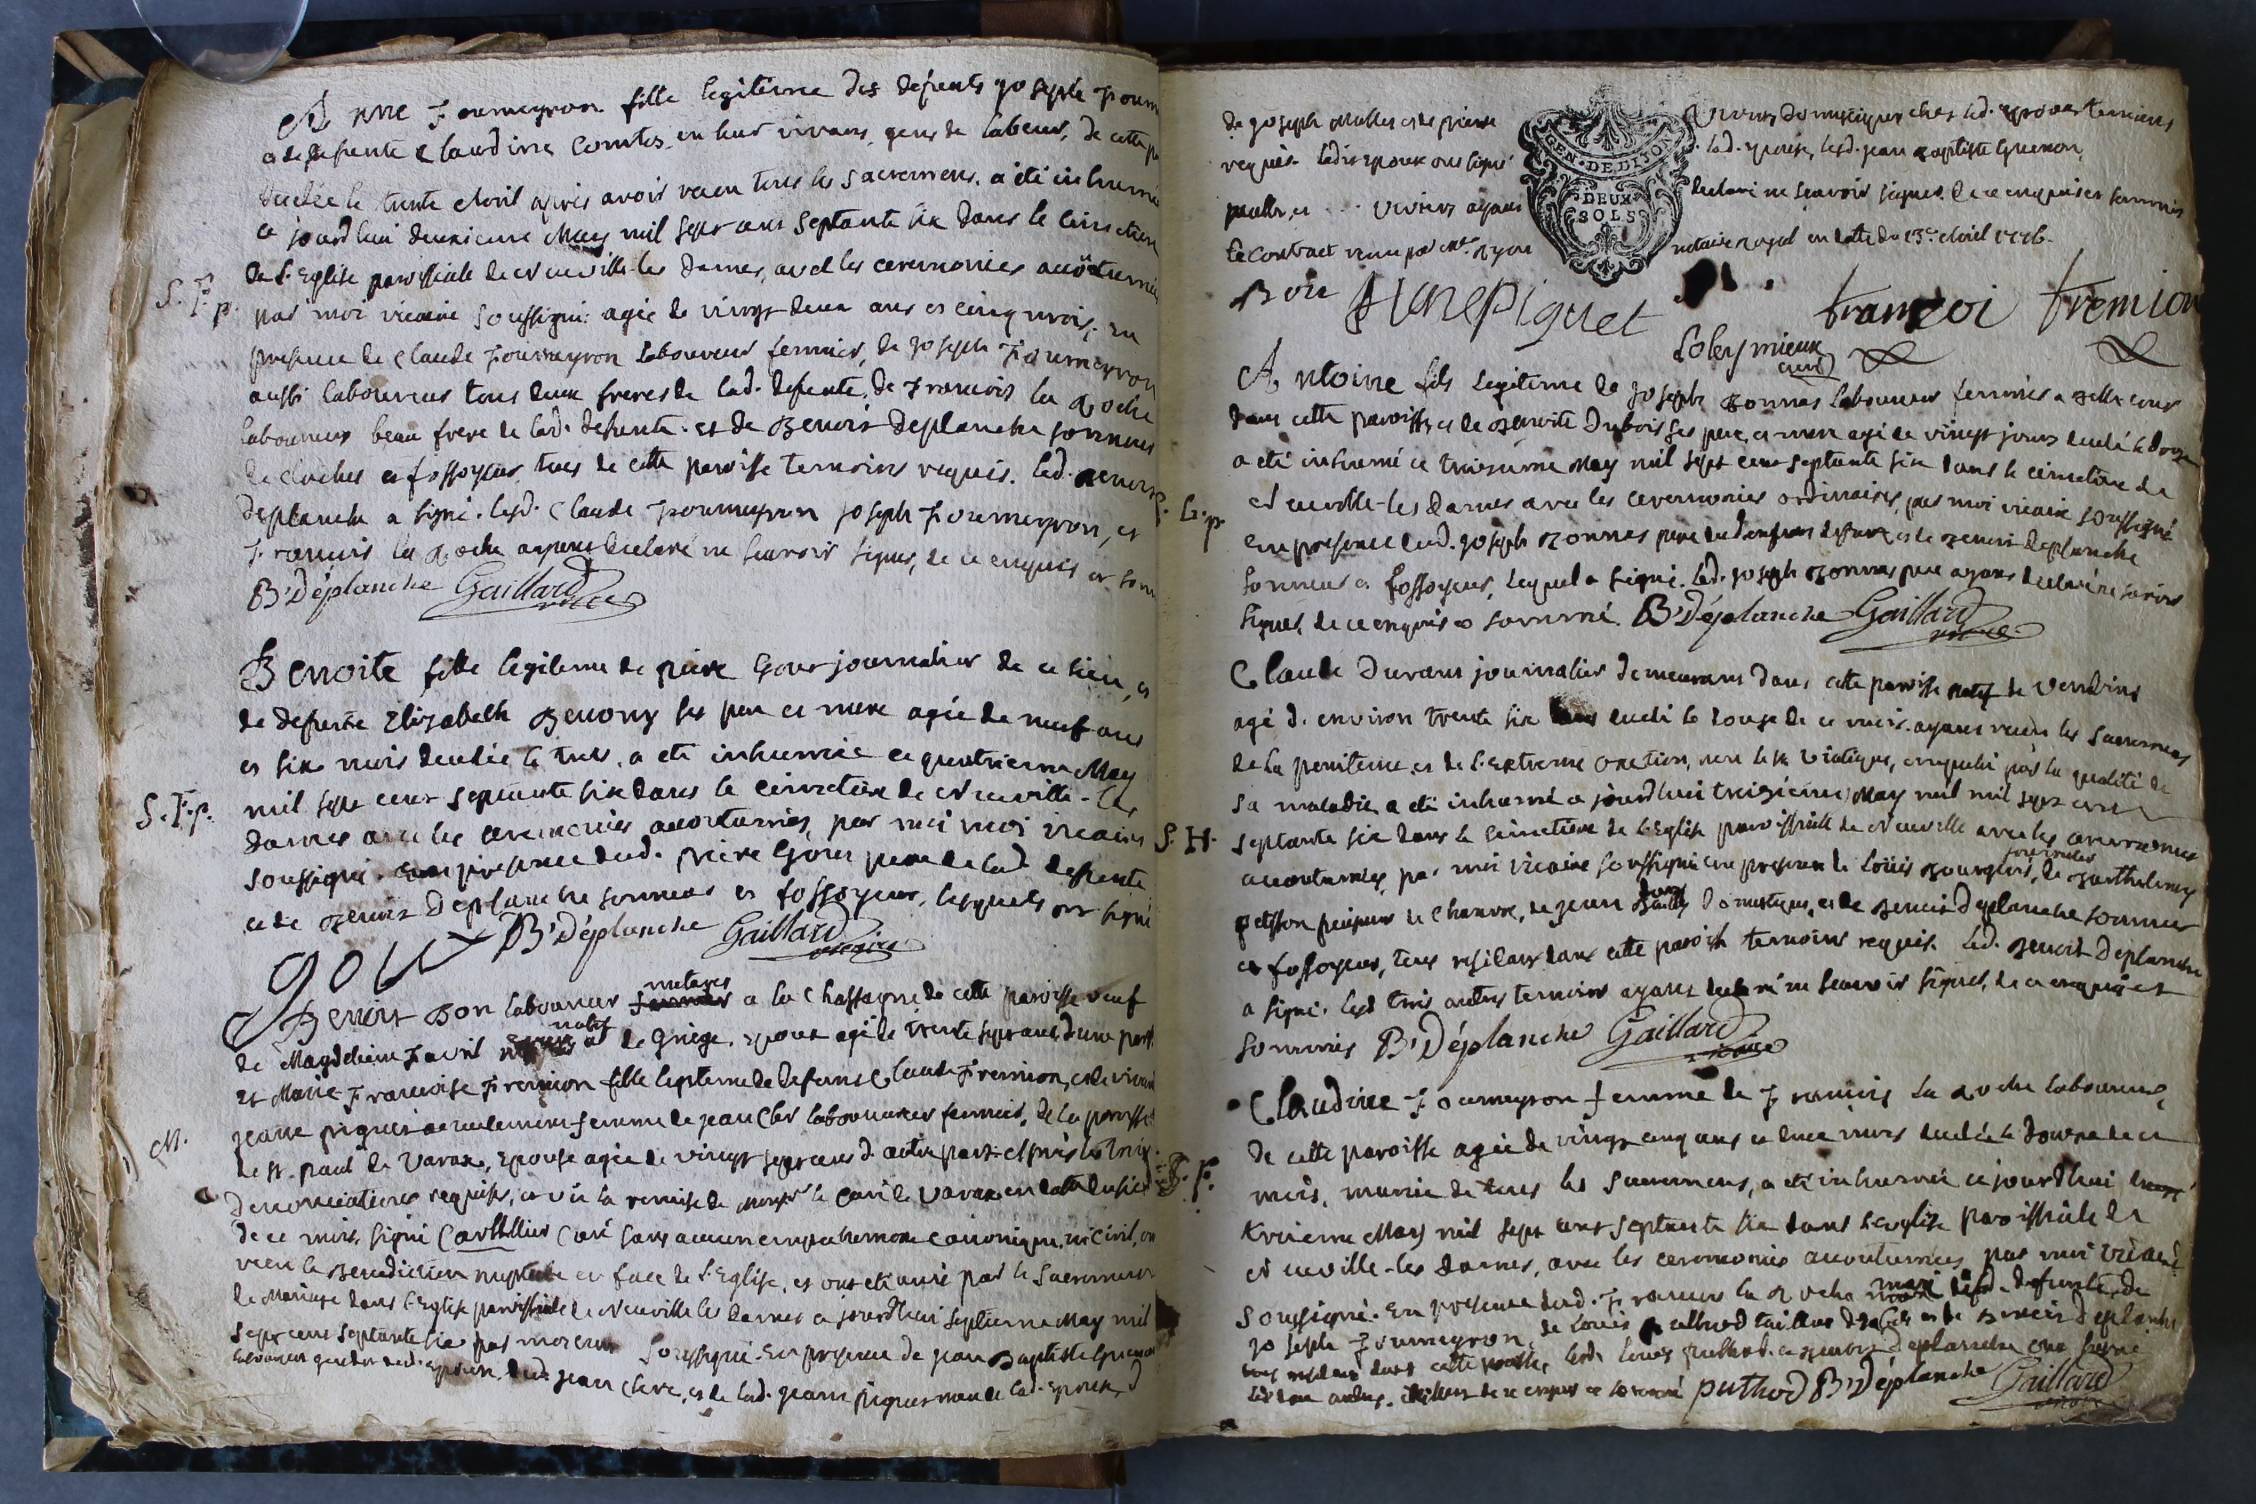 Anne Foumeyron fille legitime des defunts joseph Foum
et de defunte Claudine Comtes, en leur vivans, gens de labeur, de cette p
decedée le trente Avril après avoir recu tous les sacremens, a été inhumé
ce jourd'hui deuxieme May mil sept cens septante six dans le cimetiere
de l'Eglise paroissiale de Neuville-les dames, avec les ceremonies accoutumée
S. F. p.
par moi vicaire soussigné: agée de vingt deux ans et cinq mois; en
presence de Claude Foumeyron laboureur fermier, de joseph Foumeyron
aussi laboureur tous deux freres de lad. defunte, de Francois la Roche
laboureur beau frere de lad. defunte, et de Benoit Deplanche sonneur
de cloches et fossoyeur, tous de cette paroisse temoins requis. led. Benoit
Deplanche a signé. lesd. Claude Foumeyron joseph Foumeyron, et
Francois la Roche ayant declaré ne scavoir signer, de ce enquis et som
B. Déplanche Gaillard vicaire
Benoite fille legitime de piere Gour journalier de ce lieu, et
de defunte Elizabeth Benony ses pere et mere agée de neuf ans
et six mois decedée le trois, a eté inhumée ce quatrieme May
S. F. p.
mil sept cens septante six dans le cimetiere de Neuville-les
dames avec les ceremonies accoutumées, par moi moi vicaire
soussigné. en presence dud. piere Gour pere de lad. defunte
et de Benoit Deplanche sonneur et fossoyeur, lesquels ont signé
gour B. Déplanche Gaillard vicaire
Benoit Bon laboureur metayer a la Chassagne de cette paroisse veuf
de Magdeleine Favril natif de Griege, epoux agé de trente sept ans d'une part
M.
et Marie Francoise Fremion fille legitime de defunt Claude Fremion, et de vivante
jeane piguet actuelement femme de jean Cler laboureur fermier, de la paroisse
de st. paul de Varax, Epouse agée de vingt sept ans d'autre part. Après les trois
denonciations requises, et vû la remise de Monsr. le Curé de Varax en date du six
de ce mois, signé Carthllier Curé sans aucun empechement canonique, ni civil, ont
recu la Benediction nuptiale en face de l'Eglise, et ont eté unis par le Sacrement
de Mariage dans l'Eglise paroissiale de Neuville les dames ce jourd'hui septieme May mil
sept cens septante six par moi curé soussigné. En presence de jean Baptiste Guenon
jean clerc, et de lad. jeane piguet mere de lad. Epouse, d
de joseph Mullet et de pierre
requis. ledit epoux ont signé
le contract recu par Me. Ayon
GEN. DE DIJON
DEUX SOLS
Viviers domestiques chez led. epoux temoins
lad. epouse, led. jean Baptiste Guenon,
declaré ne scavoir signer de ce enquis et sommés
notaire royal en date du 13e. Avril 1776.
Bon Jane Piguet francoi fremion
Solleymieux curé
Antoine fils legitime de joseph Bonnet laboureur fermier a
dans cette paroisse et de Benoite Dubois ses pere, et mere agé de vingt jours decedé le douze
a eté inhumé ce treizieme May mil sept cens septante six dans le cimetiere de
G. p.
Neuville-les dames avec les ceremonies ordinaires, par moi vicaire soussigné
en presence dud. joseph Bonnet pere dud enfant defunt, et de Benoit Deplanche
sonneur et fossoyeur, lequel a signé. Led. joseph Bonnet pere ayant declaré ne scavoir
signer, de ce enquis et sommé. B. Déplanche Gaillard vicaire
Claude Durant journalier demeurant dans cette paroisse natif de Vendeins
agé d'environ trente six ans decedé le douze de ce mois, ayant recu les Sacremens
de la penitence, et de l'Extreme onction, non le st. Viatique, empeché par la qualité de
sa maladie a eté inhumé ce jourd'hui treizieme May mil mil sept cens
S. H.
septante six dans le cimetiere de l'Eglise paroissiale de Neuville avec les ceremonies
accoutumées, par moi vicaire soussigné en presence de Louis Bourgeois, journalier de Barthelemy
petisson peigneur de Chanvre, de jean Bailly domestique, et de Benoit Deplanche sonneur
et fossoyeur, tous residans dans cette paroisse temoins requis. Led. Benoit Deplanche
a signé. lesd trois autres temoins ayant declaré ne scavoir signer, de ce enquis et
sommés B. Déplanche Gaillard vicaire
Claudine Foumeyron femme de Francois la Roche laboureur
de cette paroisse agée de vingt cinq ans et deux mois decedée le douze de ce
mois, munie de tous les sacremens, a eté inhumée ce jourd'hui
treizieme May mil sept cens septante six dans l'eglise paroissiale de
Neuville-les dames, avec les ceremonies accoutumées, par moi vicaire
soussigné. En presence dud. Francois la Roche mari de lad. defunte, de
joseph Foumeyron, de Louis puthod tailleur et de Benoit Deplanche
tous residans dans cette paroisse, lesd. Louis puthod et Benoit Deplanche ont signé
les deux autres illiterés de ce enquis et sommé puthod B. Déplanche Gaillard vicaire